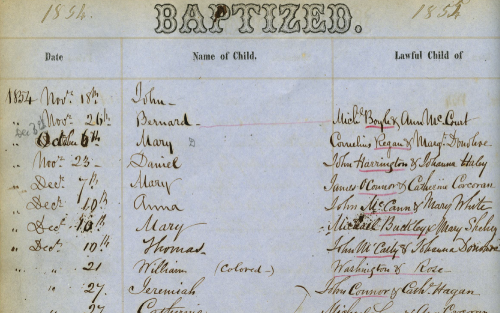 1854 1854
BAPTIZED.
Date Name of Child. Lawful Child of
1854 Novr. 18th John
" Novr. 26th Bernard Michl. Boyle & Ann McCourt
" October 6th Mary Cornelius Regan & Margt. Donohoe
" Novr. 23 Daniel John Harrington & Johanna
" Decr. 7th Mary James O'Connor & Catherine Corcoran
" Decr. 10th Anna John McCann & Mary White
" Decr. 10th Mary Michael Buckley & Mary
" Decr. 10th Thomas John & Johanna Donohoe
" " 21 William (Colored) Washington & Rose
" " 27. Jeremiah John Connor & Cath. Hagan
" " 27 Catherine